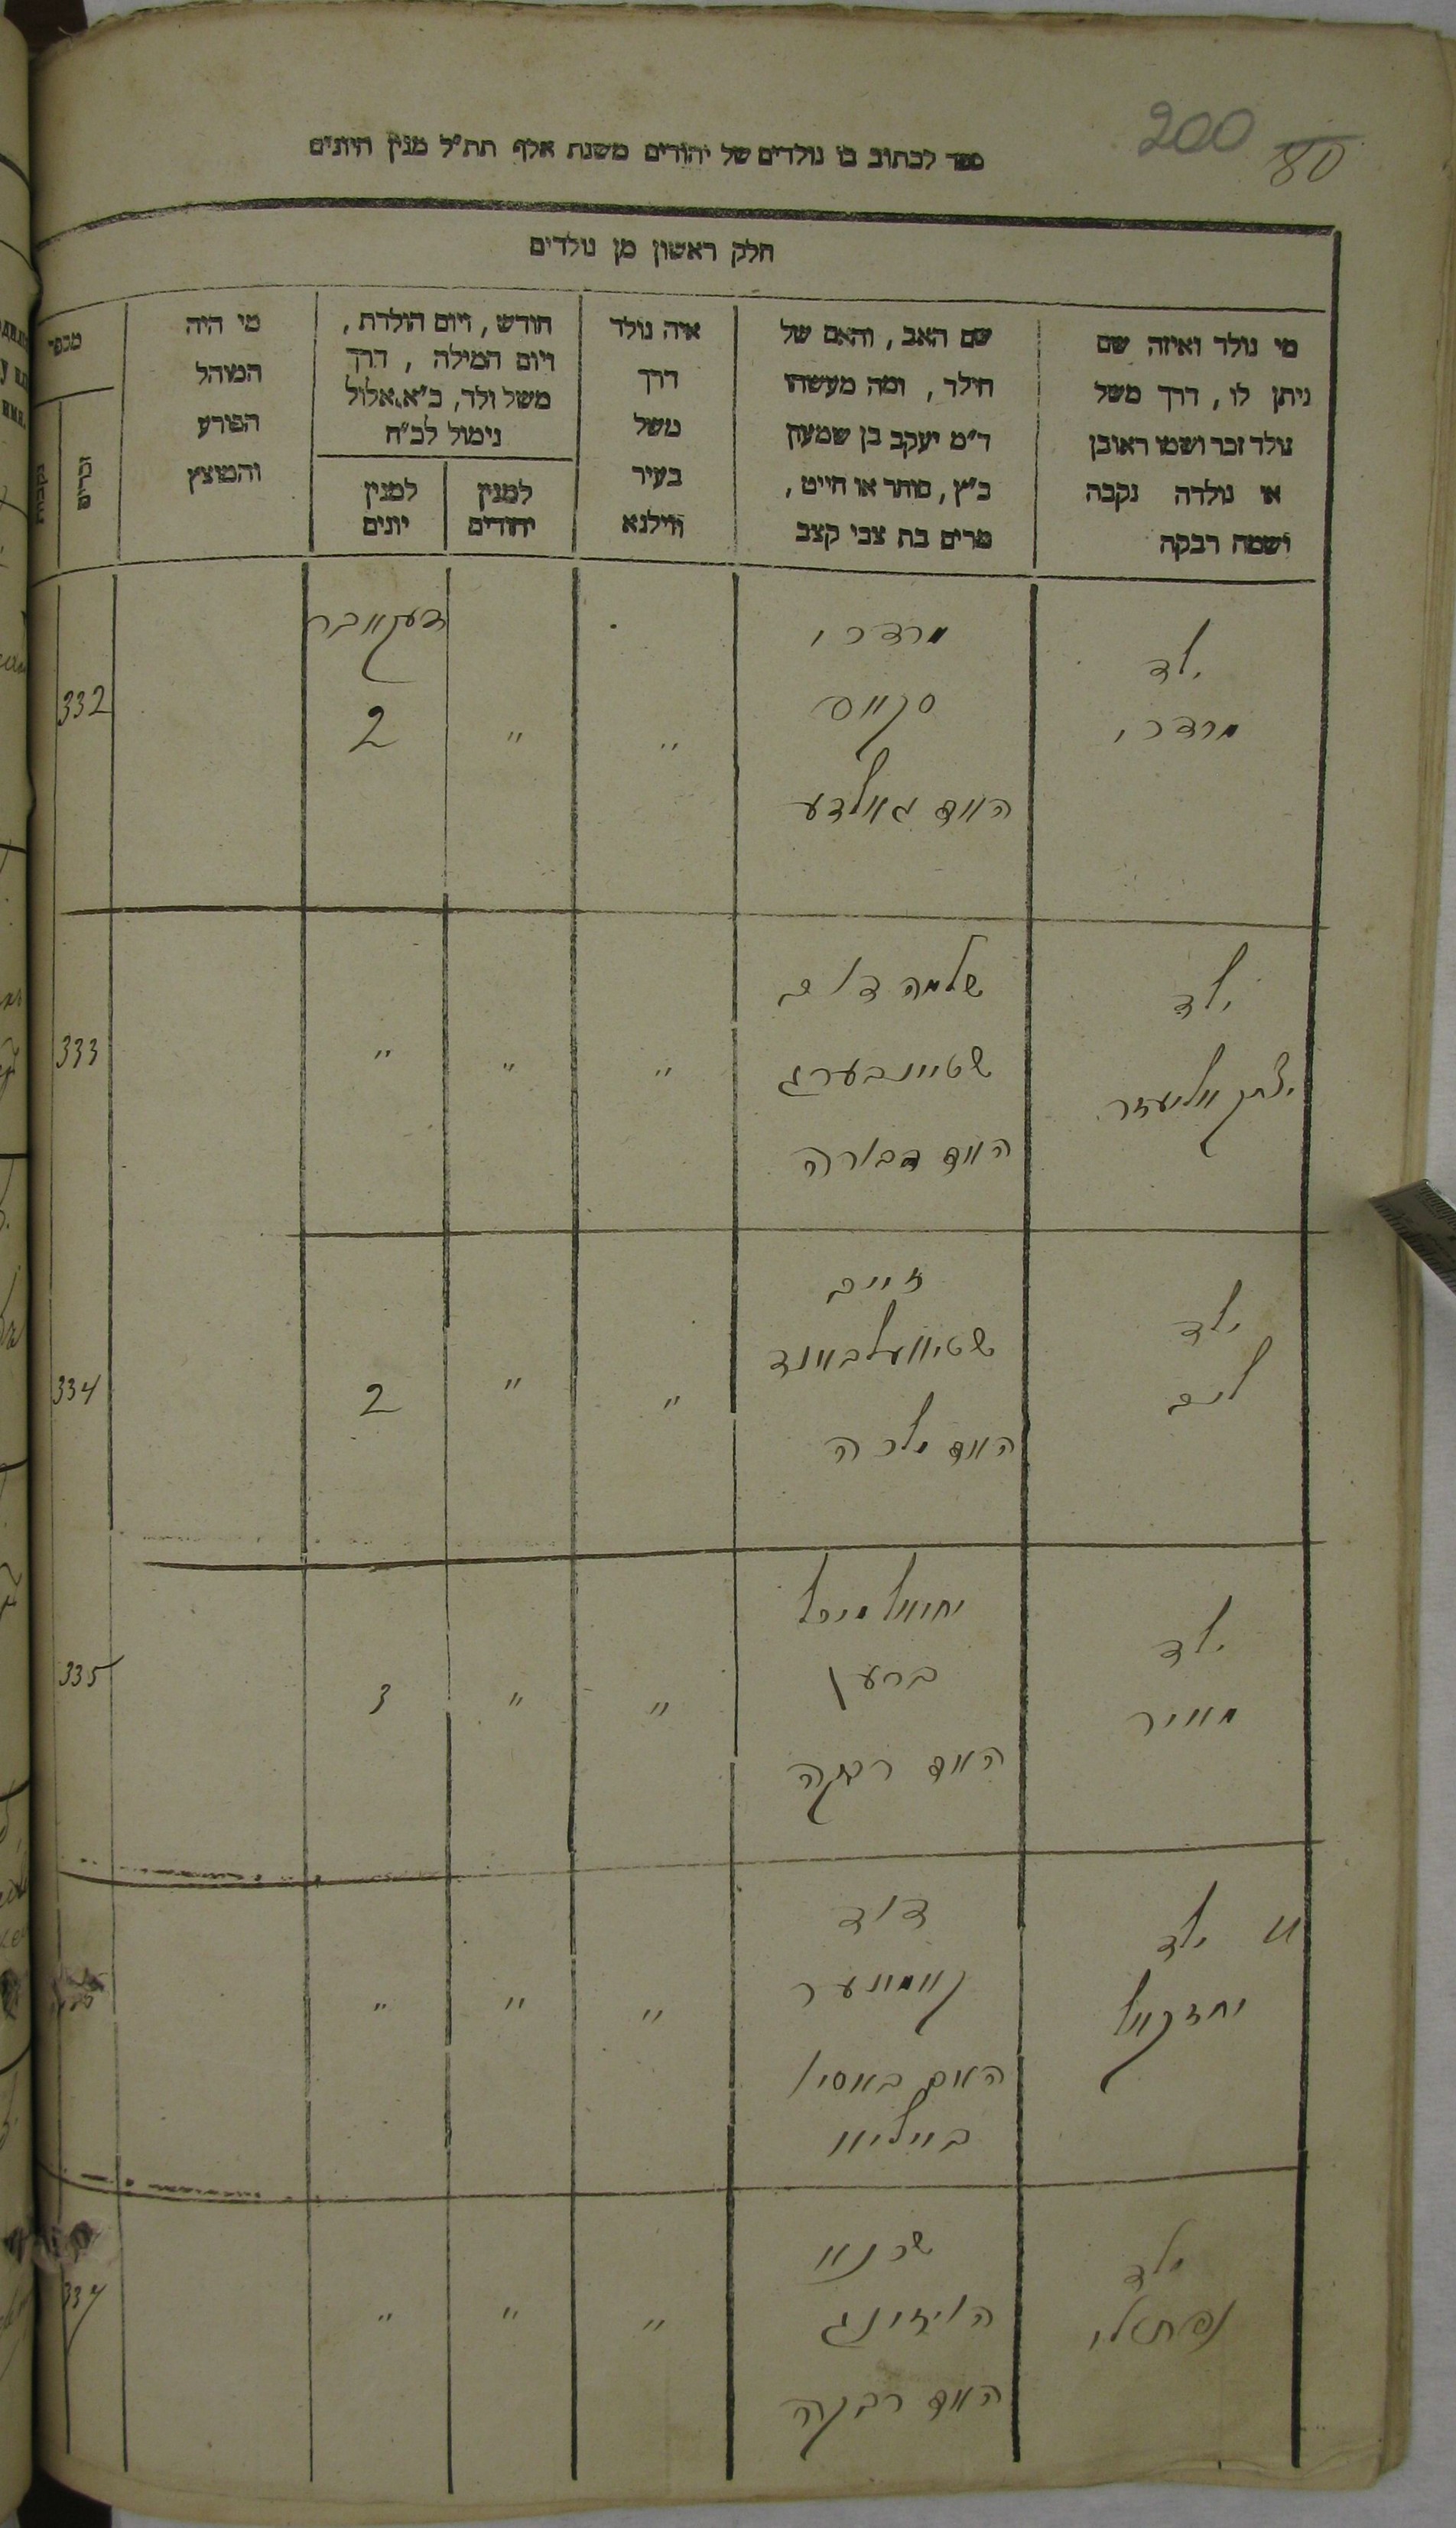 200
80
ספר לכתוב בו נולדים של יהודים משנת אלף תת"ל מנין היונים
חלק ראשון מן נולדים
מי נולד ואיזה שם
ניתן לו, דרך משל
נולד זכר ושמו ראובן
או נולדה נקבה
ושמה רבקה
שם האב, והאם של
הילד, ומה מעשהו
ד"מ יעקב בן שמעון
כ"ץ, סוחר או חייט,
מרים בת צבי קצב
איה נולד
דרך
משל
בעיר
ווילנא
חודש, ויום הולדת,
ויום המילה, דרך
משל ולד, כ"א אלול
נימול לכ"ח
למנין
יהודים
למנין
יונים
מי היה
המוהל
הפורע
והמוצץ
מספר
זכרים
נקבות
ילד
מרדכי
מרדכי
האם גאלדע
" "
2
332
ילד
יצחק אליעזר
שלמה דוב
שטיינבערג
האם דבורה
" " "
333
ילד
ליב
זייב
האם מלכה
" "
2
334
ילד
מאיר
יחיאל מיכל
האם רבקה
" "
3
335
ילד
יחזקאל
דוד
" " "
ילד
נפתלי
האם רבקה
" " "
337